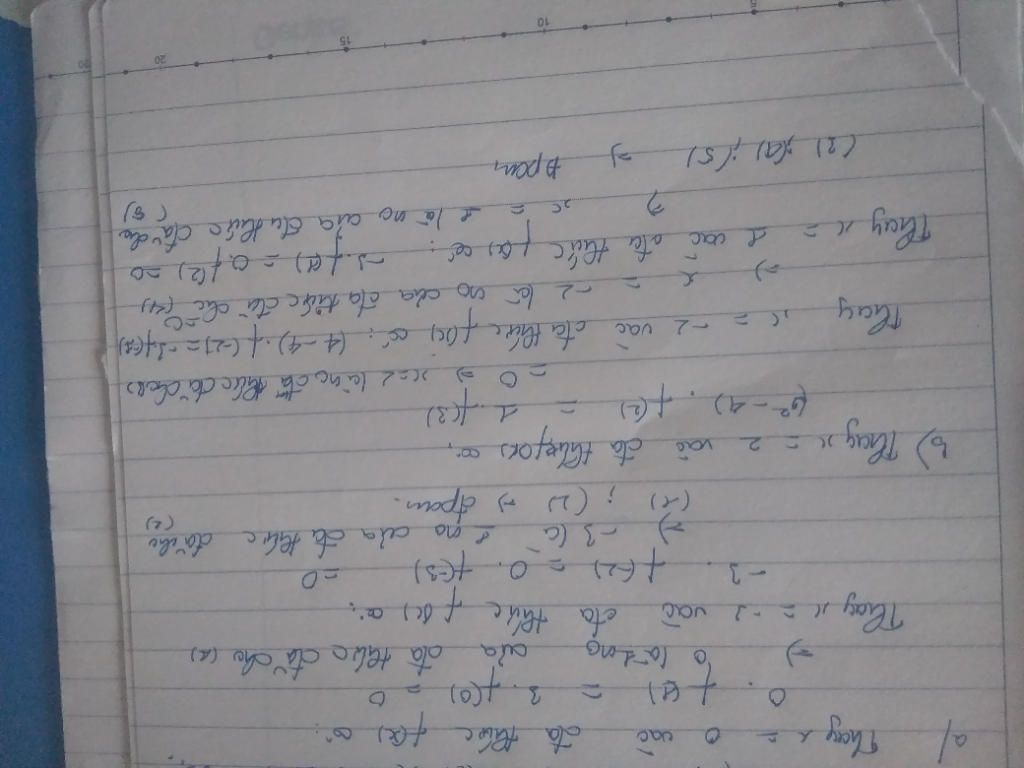 a) Thay x = 0 vào đa thức f(x) có:
0 . f(1) = 3 . f(0) = 0
=> 0 là 1 no của đa thức đã cho (1)
Thay x = -3 vào đa thức f(x) có:
-3 . f(-2) = 0 . f(-3) = 0
=> -3 là 1 no của đa thức đã cho (2)
(1) ; (2) => đpcm.
b) Thay x = 2 vào đa thức f(x) có,
(2² - 4) . f(2) = 1 . f(3)
= 0 => x = 2 là no đa thức đã cho
Thay x = -2 vào đa thức f(x) có: (4-4) . f(-2) = -3 . f(-1)
= 0
=> x = -2 là no của đa thức đã cho (4)
Thay x = 1 vào đa thức f(x) có: -3 . f(1) = 0 . f(2) = 0
=> x = 1 là no của đa thức đã cho (5)
; (4) ; (5) => đpcm,
5
10
15
20